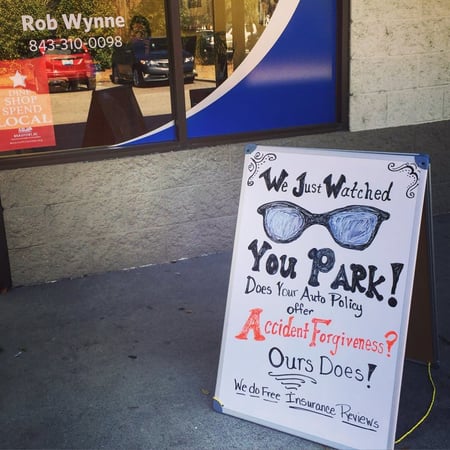 Rob Wynne
843-310-0098
DINE
SHOP
SPEND
LOCAL
We Just Watched
You Park!
Does Your Auto Policy
offer
Accident Forgiveness?
Ours Does!
We do Free Insurance Reviews